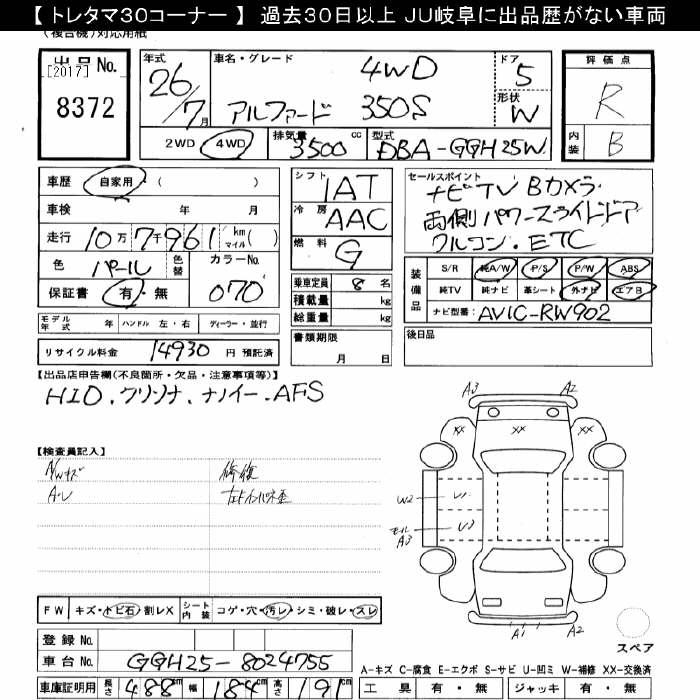 【 トレタマ30コーナー 】 過去30日以上 JU岐阜に出品歴がない車両
(複合機)対応用紙
出品No.
[2017]
8372
年式 26/7月
車名・グレード 4WD
アルファード 350S
ドア 5
形状 W
2WD 4WD 排気量 3500 cc 型式 DBA-GGH25W
評価点
R
内装 B
車歴 自家用・( )
車検 年 月
走行 10万7千961 km マイル ( )
色 パール 色替 カラーNo. 070
保証書 有・無
シフト IAT
冷房 AAC
燃料 G
乗車定員 8 名
積載量 kg
総重量 kg
書類期限
月 日
セールスポイント
ナビTV Bカメラ
両側パワースライドドア
クルコン・ETC
装備品
S/R 純A/W P/S P/W ABS
純TV 純ナビ 革シート 外ナビ エアB
ナビ型番: AVIC-RW902
後日品
モデル年式 年 ハンドル 左・右 ディーラー・並行
リサイクル料金 14930 円 預託済
【出品店申告欄(不良箇所・欠品・注意事項等)】
HID、クリソナ、ナノイー、AFS
【検査員記入】
A/Wキズ
A・U
修復
A3 A2
XX XX XX
W2 U1
モール A3 U3
A1 A2
スペア
FW キズ・トビ石・割レX シート内装 コゲ・穴・汚レ・シミ・破レ・スレ
登録 No.
車台 No. GGH25-8024755
車庫証明用 長さ 488cm 幅 184cm 高さ 191cm
A-キズ C-腐食 E-エクボ S-サビ U-凹ミ W-補修 XX-交換済
工具 有・無 ジャッキ 有・無